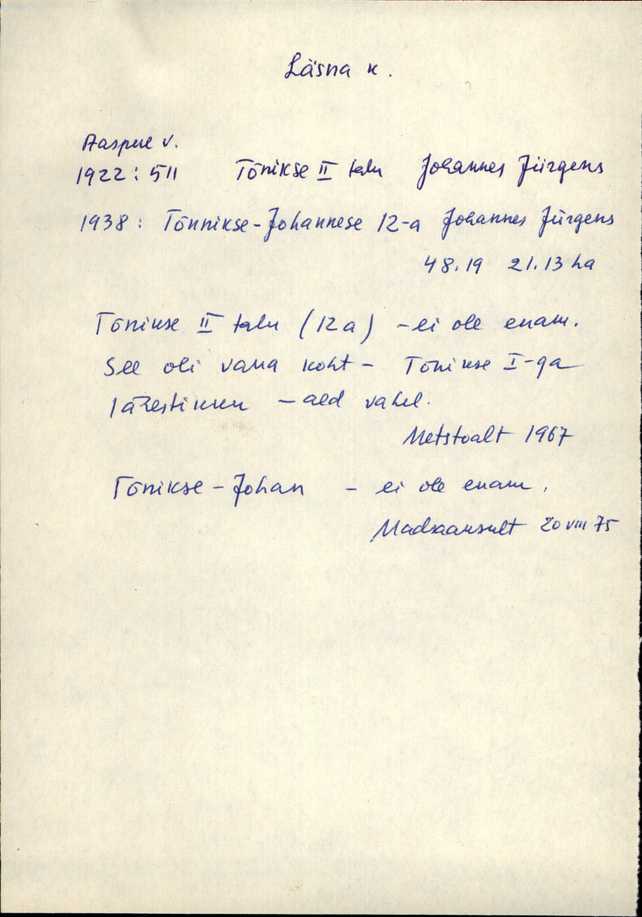 Läsna k.
Aaspere v.
1922: 511 Tõnikse II talu Johannes Jürgens
1938: Tõnnikse-Johannese 12-a Johannes Jürgens
48.19 21.13 ha
Tõnikse II talu (12a) – ei ole enam.
See oli vana koht – Tõnikse I-ga
lähestikku – aed vahel.
Metstoalt 1967
Tõnikse-Johan – ei ole enam.
20 VIII 75